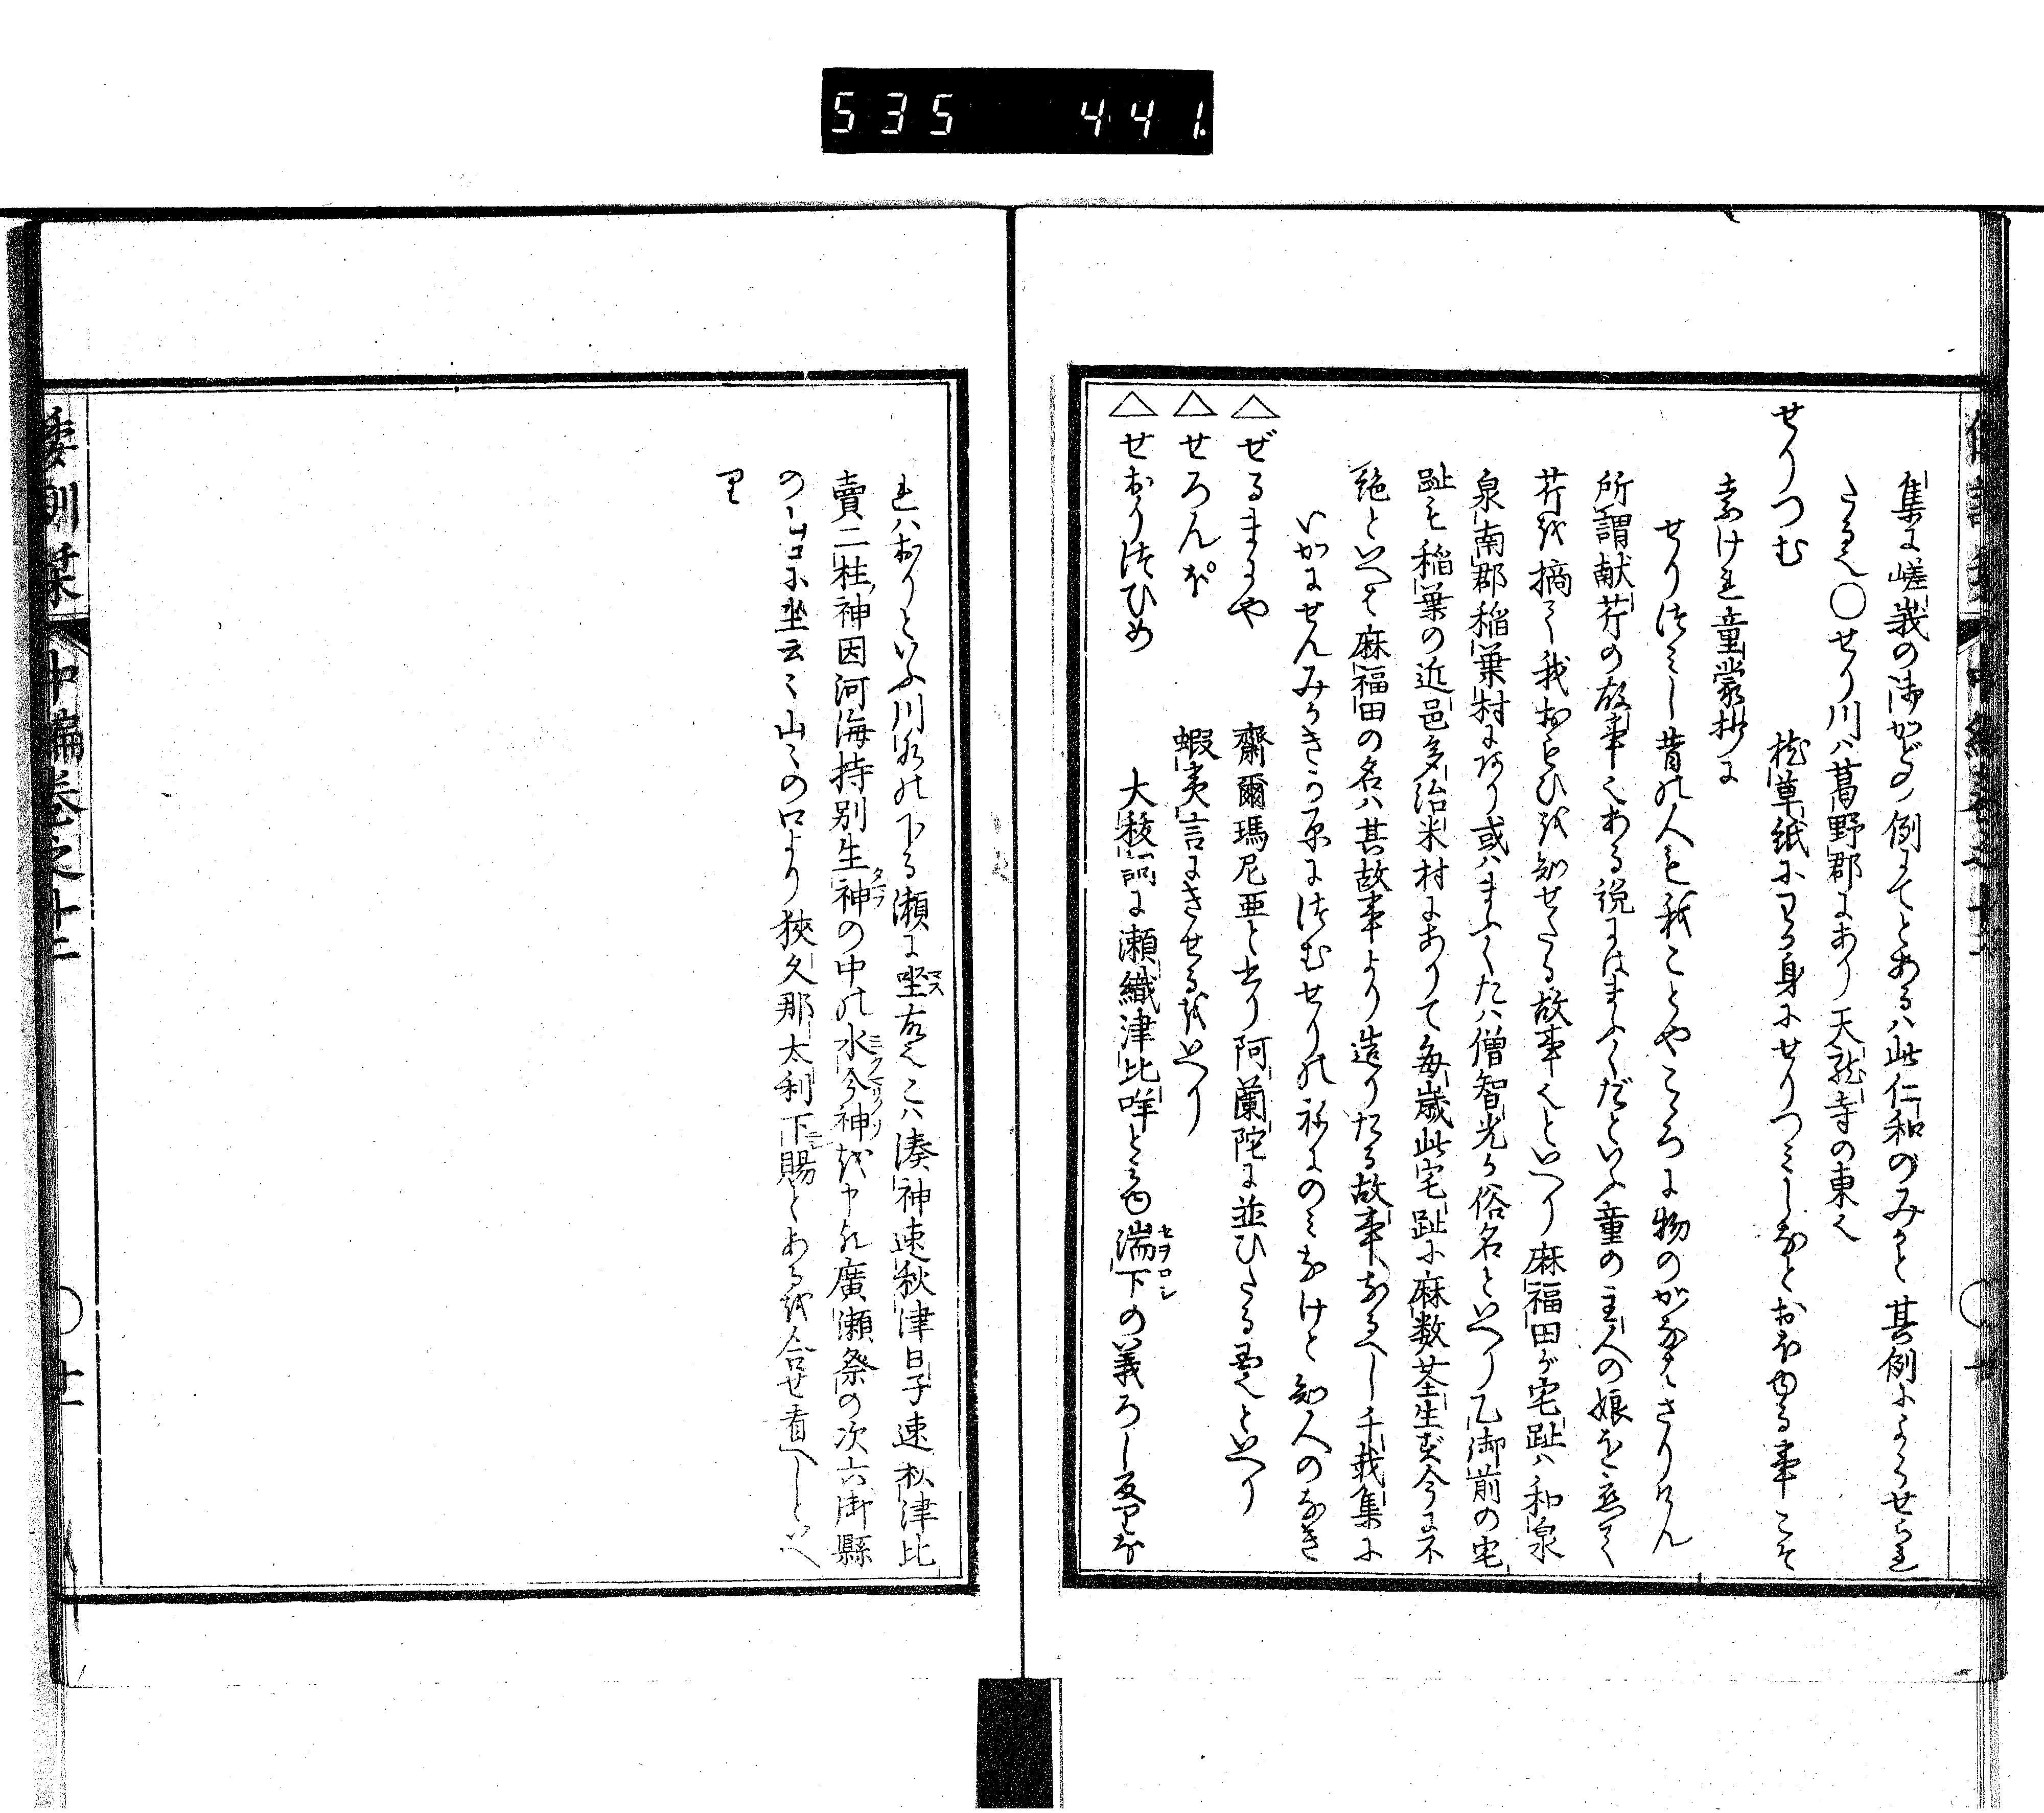 535 441.
集に嵯峨の御かどの例にてとあるハ此仁和のみかと其例によらせられ
たる也○せり川ハ葛野郡にあり天龍寺の東也
せりつむ 枕草紙にわか身にせりつミしなとおほゆる事こそ
なけれ童蒙抄に
せりつミし昔の人も我ことやこゝろに物のかなはさりけん
所謂献芹の故事也ある説にはまふくだといふ童の主人の娘を恋て
芹を摘て我おもひを知せたる故事也といへり麻福田が宅趾ハ和泉
泉南郡稲葉村にあり或ハまふくたハ僧智光か俗名といへり乙御前の宅
趾も稲葉の近邑多治米村にありて毎歳此宅趾に麻数茎生ず今に不
絶といへは麻福田の名ハ其故事より造りたる故事なるへし千載集に
いかにせんみかきか原につむせりのねにのミなけと知人のなき
△ぜるまにや 齋爾瑪尼亜と書り阿蘭陀に並ひたる国也といへり
△せろんぽ 蝦夷言にきせるをいへり
△せおりつひめ 大秡詞に瀬織津比咩と見ゆ湍下の義ろし反りな
セヲロシ
れハおりといふ川水の下る瀬に坐故也こハ湊神速秋津日子速秋津比
マス
賣二柱神因河海持別生神の中の水分神を申也廣瀬祭の次六御縣
タマフ ミクマリノ
の山口に坐云々山々の口より狭久那太利下賜とあるを合せ看へしといへ
り
倭訓栞 中編巻之十二 ○ 廿一